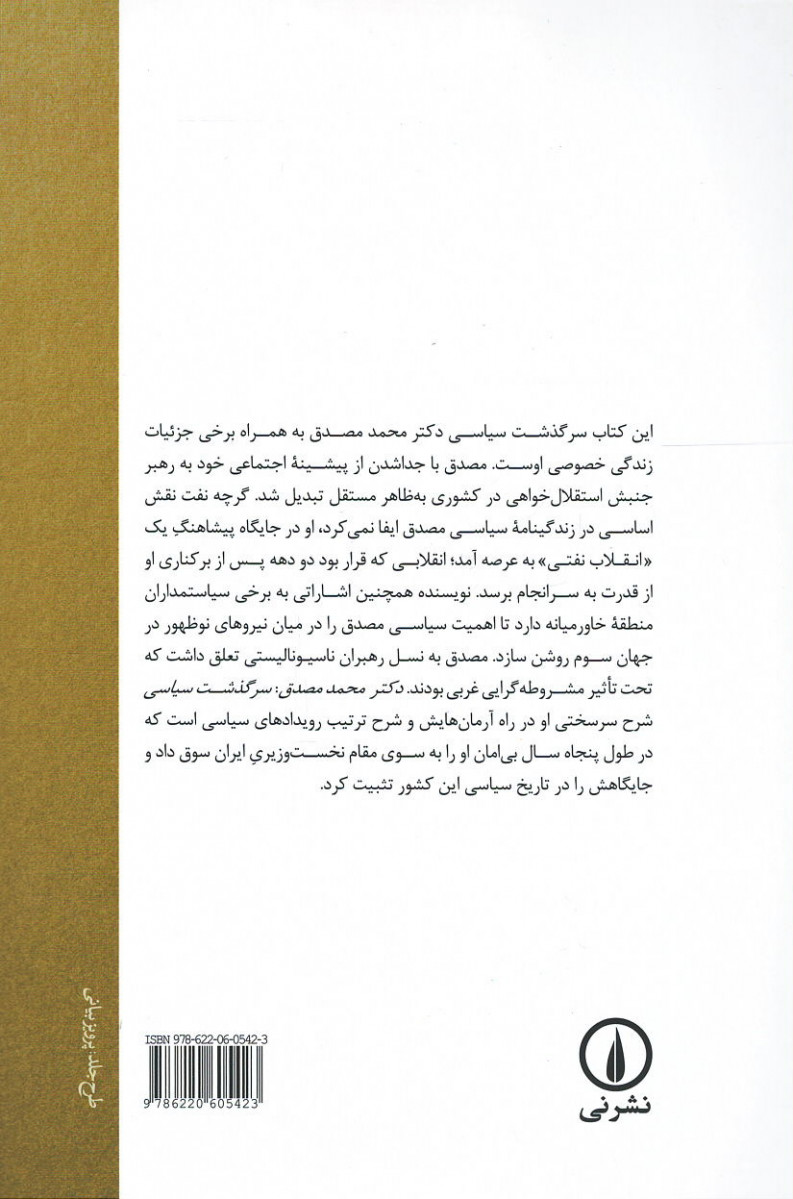 این کتاب سرگذشت سیاسی دکتر محمد مصدق به همراه برخی جزئیات
زندگی خصوصی اوست. مصدق با جداشدن از پیشینهٔ اجتماعی خود به رهبر
جنبش استقلال‌خواهی در کشوری به‌ظاهر مستقل تبدیل شد. گرچه نفت نقش
اساسی در زندگینامهٔ سیاسی مصدق ایفا نمی‌کرد، او در جایگاه پیشاهنگِ یک
«انقلاب نفتی» به عرصه آمد؛ انقلابی که قرار بود دو دهه پس از برکناری او
از قدرت به سرانجام برسد. نویسنده همچنین اشاراتی به برخی سیاستمداران
منطقهٔ خاورمیانه دارد تا اهمیت سیاسی مصدق را در میان نیروهای نوظهور در
جهان سوم روشن سازد. مصدق به نسل رهبران ناسیونالیستی تعلق داشت که
تحت تأثیر مشروطه‌گرایی غربی بودند. دکتر محمد مصدق: سرگذشت سیاسی
شرح سرسختی او در راه آرمان‌هایش و شرح ترتیب رویدادهای سیاسی است که
در طول پنجاه سال بی‌امان او را به سوی مقام نخست‌وزیریِ ایران سوق داد و
جایگاهش را در تاریخ سیاسی این کشور تثبیت کرد.
طرح جلد: پرویز بیانی
ISBN 978-622-06-0542-3
9 786220 605423
نشر نی